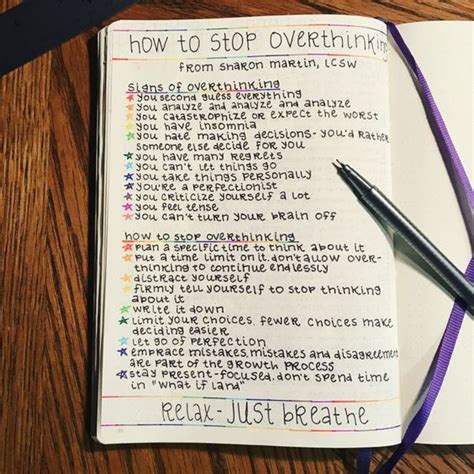 how to stop overthinking
from sharon martin, LCSW
signs of overthinking
you second guess everything
you analyze and analyze and analyze
you catastrophize or expect the worst
you have insomnia
you hate making decisions- you'd rather
someone else decide for you
you have many regrets
you can't let things go
you take things personally
you're a perfectionist
you criticize yourself a lot
you feel tense
you can't turn your brain off
how to stop overthinking
plan a specific time to think about it
put a time limit on it. don't allow over-
thinking to continue endlessly
distract yourself
firmly tell yourself to stop thinking
about it
write it down
limit your choices. fewer choices make
deciding easier
let go of perfection
embrace mistakes, mistakes and disagreement
are part of the growth process
stay present-focused. don't spend time
in "what if land"
relax - just breathe